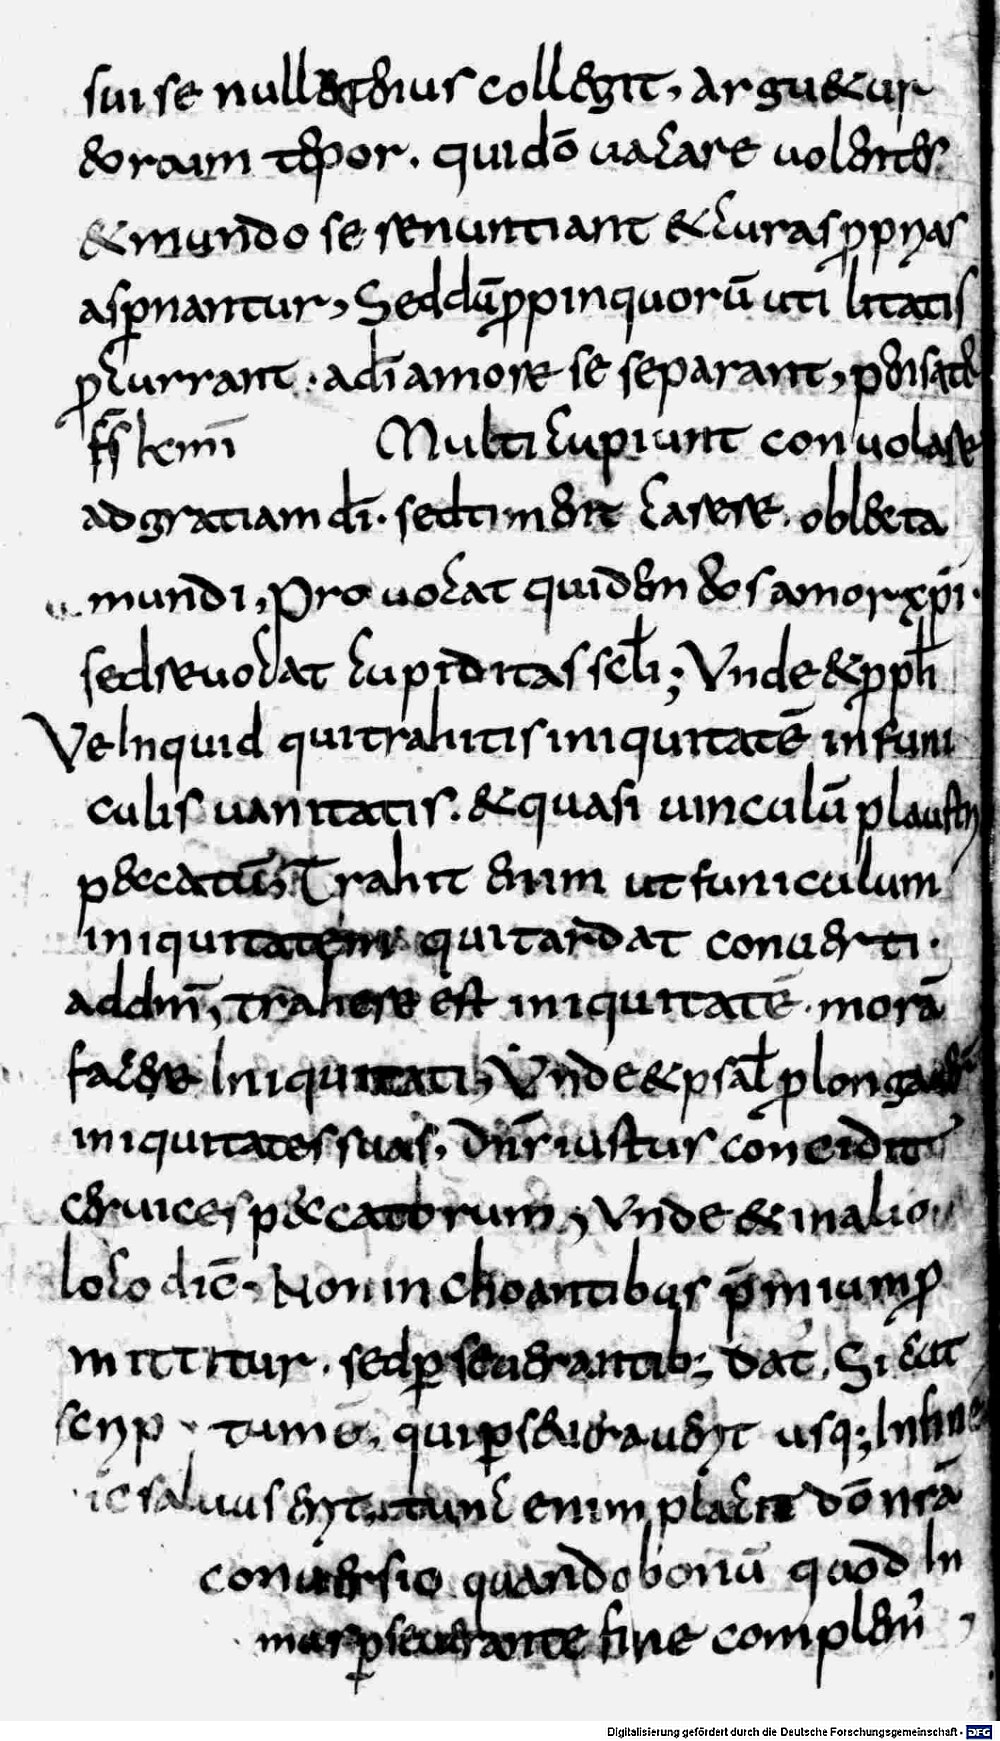 sui se nullatenus collegit, arguetur
eorum tepor. qui dō vacare volentes
& mundo se renuntiant & curas ppryas
aspnantur, Sed dū ppinquorū utilitatis
pcurrant. a dī amore se separant,
Multi cupiunt convolare
ad gratiam dī. sed timent carere. oblecta
mundi, Provocat quidem eos amor xpi.
sed revocat cupiditas scłi; Unde & pph
Ve Inquid qui trahitis iniquitatē in funi
culis vanitatis. & quasi vinculū plaustri
peccatū, Trahit enim ut funiculum
iniquitatem qui tardat converti.
ad dm̄, trahere est iniquitatē. morā
facere Iniquitati, Unde & psał plongaver̄
iniquitates suas, dn̄s iustus concidit
cervices peccatorum, Unde & in alio
loco dic̄. Non inchoantibus p̄mium p
mittitur. sed pseverantib; dat̄. Sicut
scryp tum ē, qui pseveraveryt usq; In fine
ic salvus eryt, tunc enim placit dō nrā
conversio quando bonū quod In
mus pseverante fine complem̄
Digitalisierung gefördert durch die Deutsche Forschungsgemeinschaft - DFG